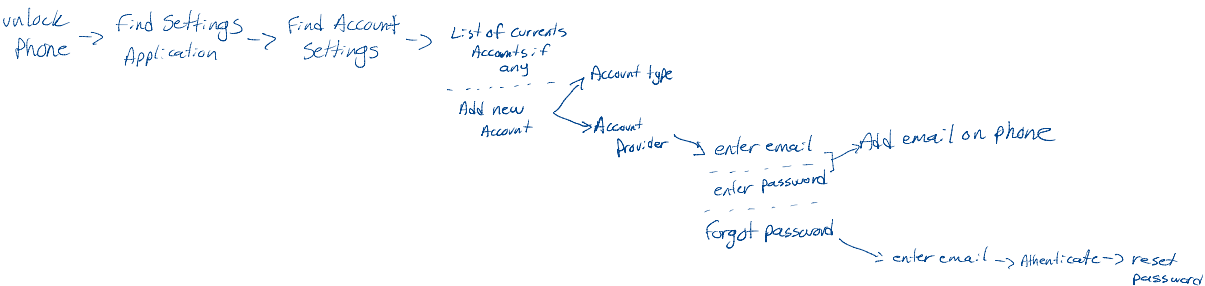 unlock
Phone
Find Settings
Application
Find Account
Settings
List of currents
Accounts if
any
Add new
Account
Account type
Account
Provider
enter email
enter password
Forgot password
Add email on phone
enter email
Athenticate
reset
password